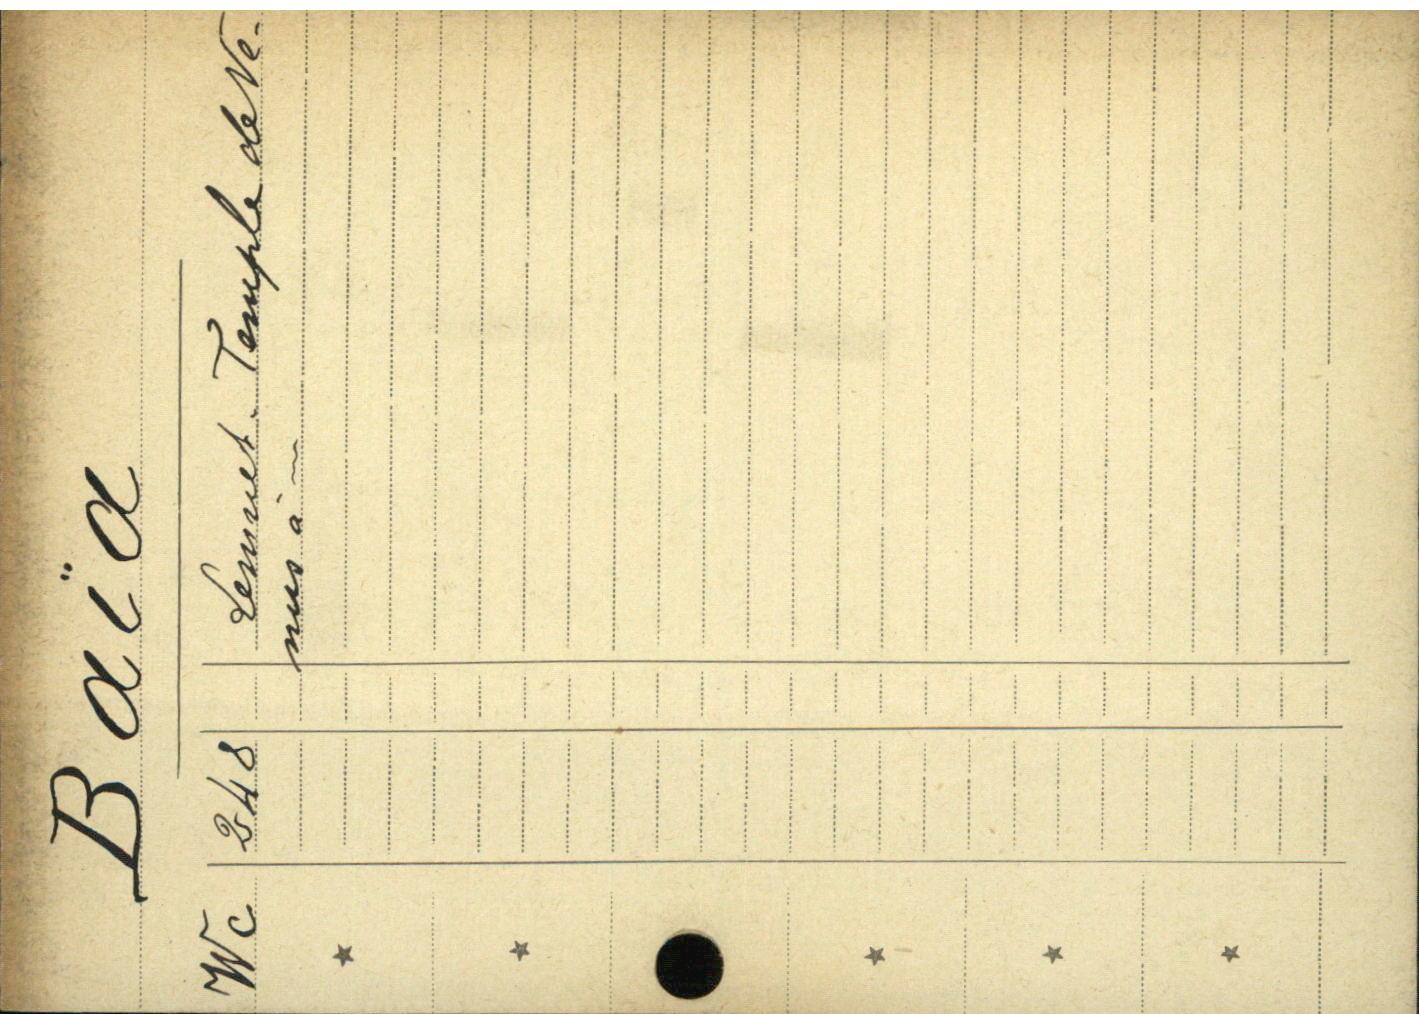 Baïa
Wc 248 Lemuet. Temple de Ve-
nus à ~